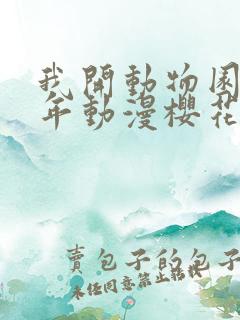 我開動物園
年動漫櫻花
賣包子的包子
未經同意禁止轉載